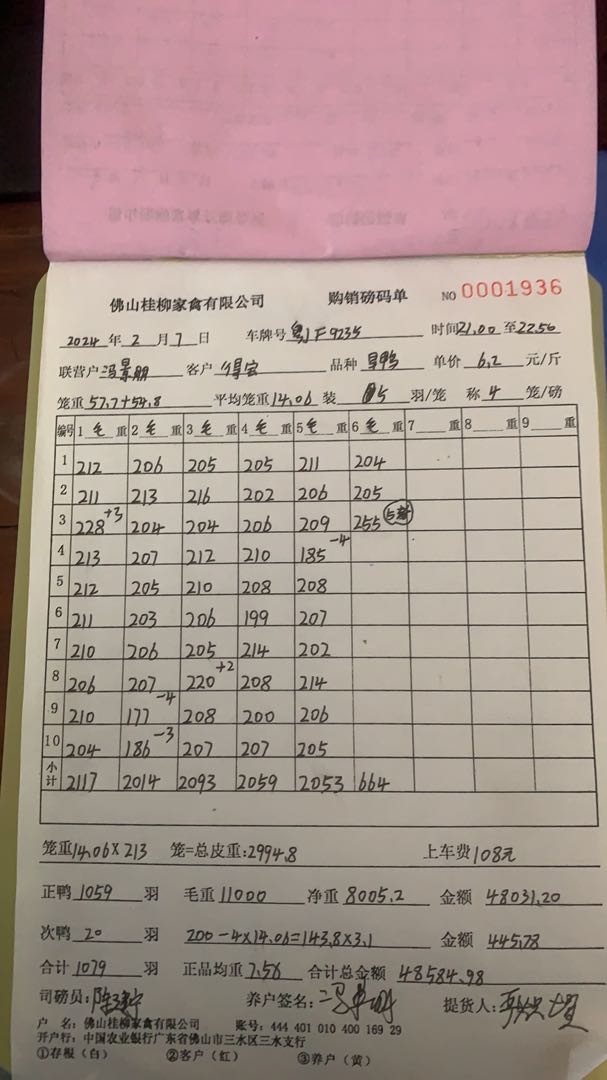 佛山桂柳家禽有限公司 购销磅码单 NO 0001936
2024 年 2 月 7 日 车牌号 粤JF9235 时间 21.00 至 22.50
联营户 冯景朋 客户 得宝 品种 番鸭 单价 6.2 元/斤
笼重 57.7+54.8 平均笼重 14.06 装 5 羽/笼 称 4 笼/磅
编号 1 毛 重 2 毛 重 3 毛 重 4 毛 重 5 毛 重 6 毛 重 7 重 8 重 9 重
1 212 206 205 205 211 204
2 211 213 216 202 206 205
3 228 +3 204 204 206 209 255 5
4 213 207 212 210 185 -4
5 212 205 210 208 208
6 211 203 206 199 207
7 210 206 205 214 202
8 206 207 220 +2 208 214
9 210 177 -4 208 200 206
10 204 186 -3 207 207 205
小计 2117 2014 2093 2059 2053 664
笼重 14.06 X 213 笼=总皮重: 2994.8 上车费 108元
正鸭 1059 羽 毛重 11000 净重 8005.2 金额 48031.20
次鸭 20 羽 200-4X14.06=143.8X3.1 金额 445.78
合计 1079 羽 正品均重 7.56 合计总金额 48584.98
司磅员: 养户签名: 提货人:
户 名: 佛山桂柳家禽有限公司 账号: 444 401 010 400 169 29
开户行: 中国农业银行广东省佛山市三水区三水支行
①存根（白） ②客户（红） ③养户（黄）